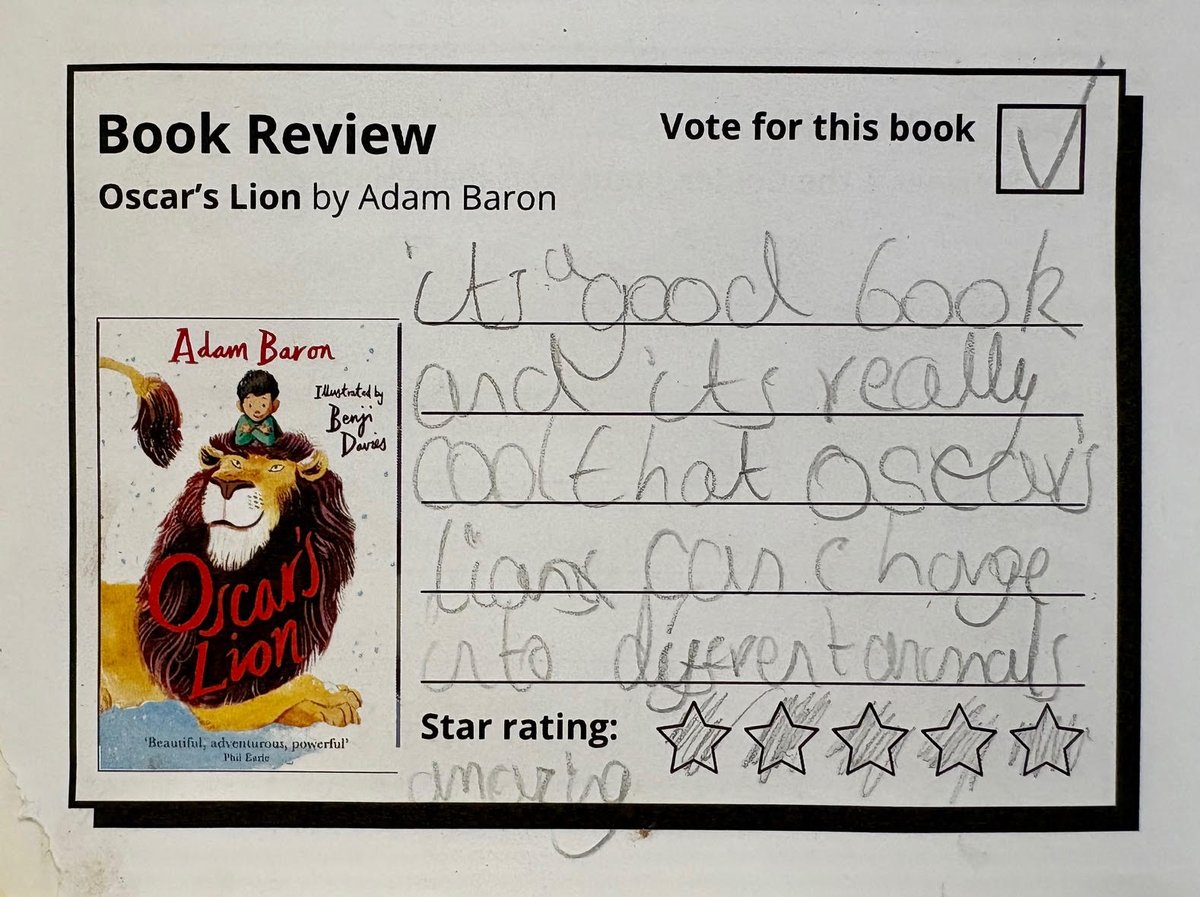 Book Review
Vote for this book
Oscar's Lion by Adam Baron
its a good book
and its really
cool that oscar's
lion can change
into different animals
Star rating:
amazing
Adam Baron
Illustrated by
Benji
Davies
Oscar's
Lion
'Beautiful, adventurous, powerful'
Phil Earle